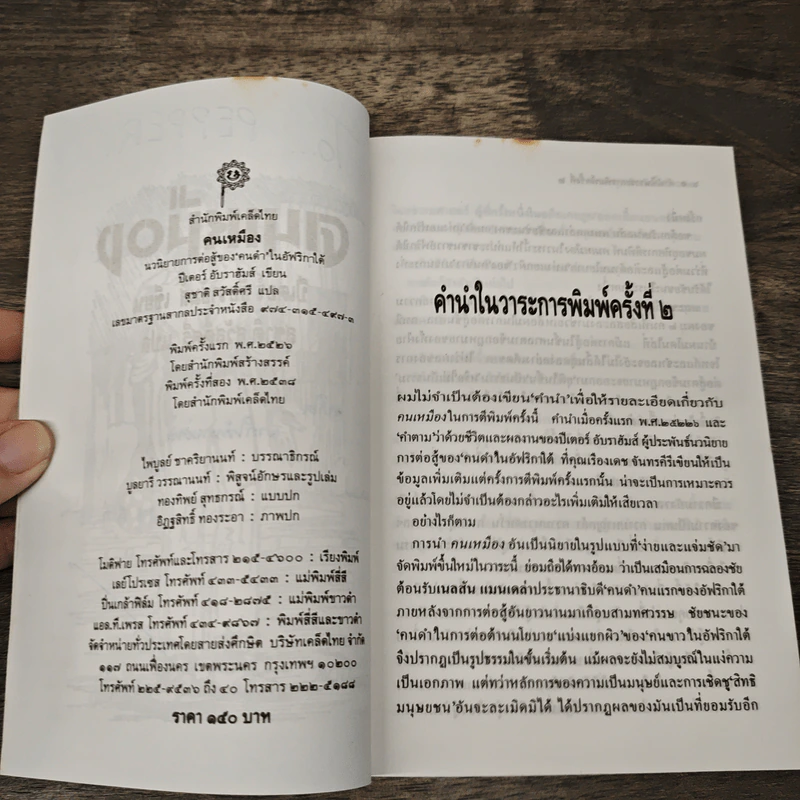 สำนักพิมพ์เคล็ดไทย
คนเหมือง
นวนิยายการต่อสู้ของ‘คนดำ’ในอัฟริกาใต้
ปีเตอร์ อับราฮัมส์ เขียน
สุชาติ สวัสดิ์ศรี แปล
เลขมาตรฐานสากลประจำหนังสือ ๙๗๔-๓๑๕-๔๙๗-๑
พิมพ์ครั้งแรก พ.ศ.๒๕๒๖
โดยสำนักพิมพ์สร้างสรรค์
พิมพ์ครั้งที่สอง พ.ศ.๒๕๓๘
โดยสำนักพิมพ์เคล็ดไทย
ไพบูลย์ ชาคริยานนท์ : บรรณาธิกรณ์
บูลยารี วรรณานนท์ : พิสูจน์อักษรและรูปเล่ม
ทองทิพย์ สุทธกรณ์ : แบบปก
อิฏฐสิทธิ์ ทองระอา : ภาพปก
โมติฟาย โทรศัพท์และโทรสาร ๒๑๕-๔๖๐๐ : เรียงพิมพ์
เลย์โปรเซส โทรศัพท์ ๔๓๓-๕๔๓๓ : แม่พิมพ์สี่สี
ปิ่นเกล้าฟิล์ม โทรศัพท์ ๔๑๘-๒๘๗๕ : แม่พิมพ์ขาวดำ
แอล.ที.เพรส โทรศัพท์ ๔๓๔-๙๘๖๗ : พิมพ์สี่สีและขาวดำ
จัดจำหน่ายทั่วประเทศโดยสายส่งศึกษิต บริษัทเคล็ดไทย จำกัด
๑๑๗ ถนนเฟื่องนคร เขตพระนคร กรุงเทพฯ ๑๐๒๐๐
โทรศัพท์ ๒๒๕-๙๕๓๖ ถึง ๔๐ โทรสาร ๒๒๒-๕๑๘๘
ราคา ๑๕๐ บาท
คำนำในวาระการพิมพ์ครั้งที่ ๒
ผมไม่จำเป็นต้องเขียน‘คำนำ’เพื่อให้รายละเอียดเกี่ยวกับ
คนเหมืองในการตีพิมพ์ครั้งนี้ คำนำเมื่อครั้งแรก พ.ศ.๒๕๒๒๖ และ
‘คำตาม’ว่าด้วยชีวิตและผลงานของปีเตอร์ อับราฮัมส์ ผู้ประพันธ์นวนิยาย
การต่อสู้ของ‘คนดำในอัฟริกาใต้ ที่คุณเรืองเดช จันทรคีรีเขียนให้เป็น
ข้อมูลเพิ่มเติมแต่ครั้งการตีพิมพ์ครั้งแรกนั้น น่าจะเป็นการเหมาะควร
อยู่แล้วโดยไม่จำเป็นต้องกล่าวอะไรเพิ่มเติมให้เสียเวลา
อย่างไรก็ตาม
การนำ คนเหมือง อันเป็นนิยายในรูปแบบที่‘ง่ายและแจ่มชัด’มา
จัดพิมพ์ขึ้นใหม่ในวาระนี้ ย่อมถือได้ทางอ้อม ว่าเป็นเสมือนการฉลองชัย
ต้อนรับเนลสัน แมนเดล่าประธานาธิบดี‘คนดำ’คนแรกของอัฟริกาใต้
ภายหลังจากการต่อสู้อันยาวนานมาเกือบสามทศวรรษ ชัยชนะของ
‘คนดำในการต่อต้านนโยบาย‘แบ่งแยกผิว’ของ‘คนขาวในอัฟริกาใต้
จึงปรากฏเป็นรูปธรรมในขั้นเริ่มต้น แม้ผลจะยังไม่สมบูรณ์ในแง่ความ
เป็นเอกภาพ แต่ทว่าหลักการของความเป็นมนุษย์และการเชิดชู‘สิทธิ
มนุษยชน’อันจะละเมิดมิได้ ได้ปรากฏผลของมันเป็นที่ยอมรับอีก